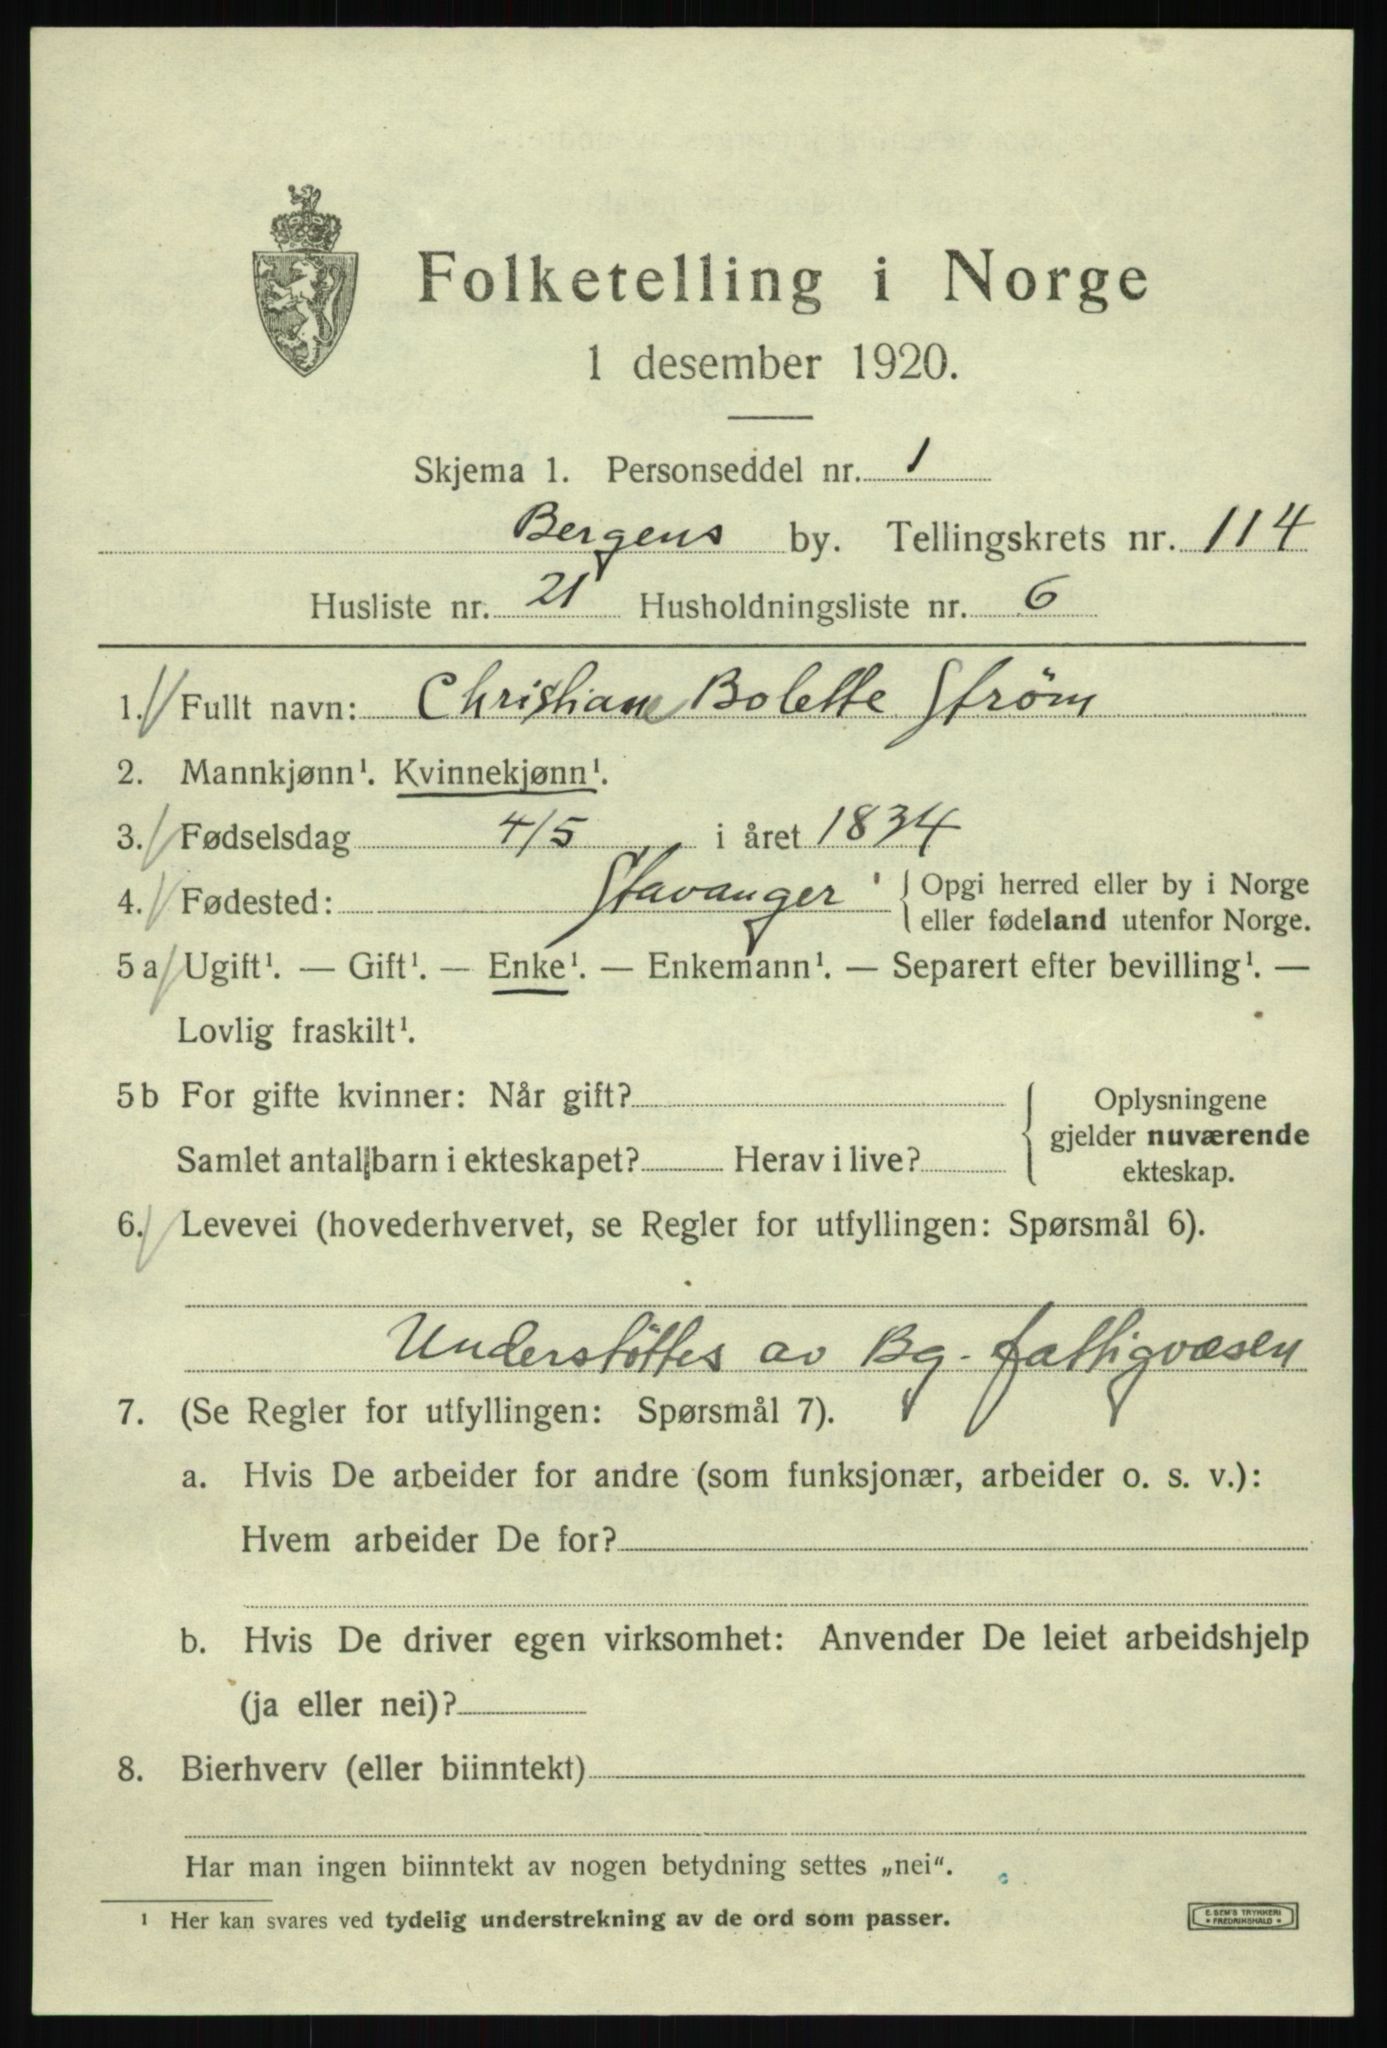 Folketelling i Norge
1 desember 1920.
Skjema 1. Personseddel nr. 1
Bergens by. Tellingskrets nr. 114
Husliste nr. 21 Husholdningsliste nr. 6
1. Fullt navn: Christiane Bolette Strøm
2. Mannkjønn¹. Kvinnekjønn¹.
3. Fødselsdag 4/5 i året 1834
4. Fødested: Stavanger { Opgi herred eller by i Norge
eller fødeland utenfor Norge.
5 a Ugift¹. — Gift¹. — Enke¹. — Enkemann¹. — Separert efter bevilling¹. —
Lovlig fraskilt¹.
5 b For gifte kvinner: Når gift? { Oplysningene
gjelder nuværende
Samlet antal barn i ekteskapet? Herav i live?
ekteskap.
6. Levevei (hovederhvervet, se Regler for utfyllingen: Spørsmål 6).
Understøttes av Bg. fattigvæsen
7. (Se Regler for utfyllingen: Spørsmål 7).
a. Hvis De arbeider for andre (som funksjonær, arbeider o. s. v.):
Hvem arbeider De for?
b. Hvis De driver egen virksomhet: Anvender De leiet arbeidshjelp
(ja eller nei)?
8. Bierhverv (eller biinntekt)
Har man ingen biinntekt av nogen betydning settes „nei“.
¹ Her kan svares ved tydelig understrekning av de ord som passer.
E. SEM'S TRYKKERI
* FREDRIKSHALD *